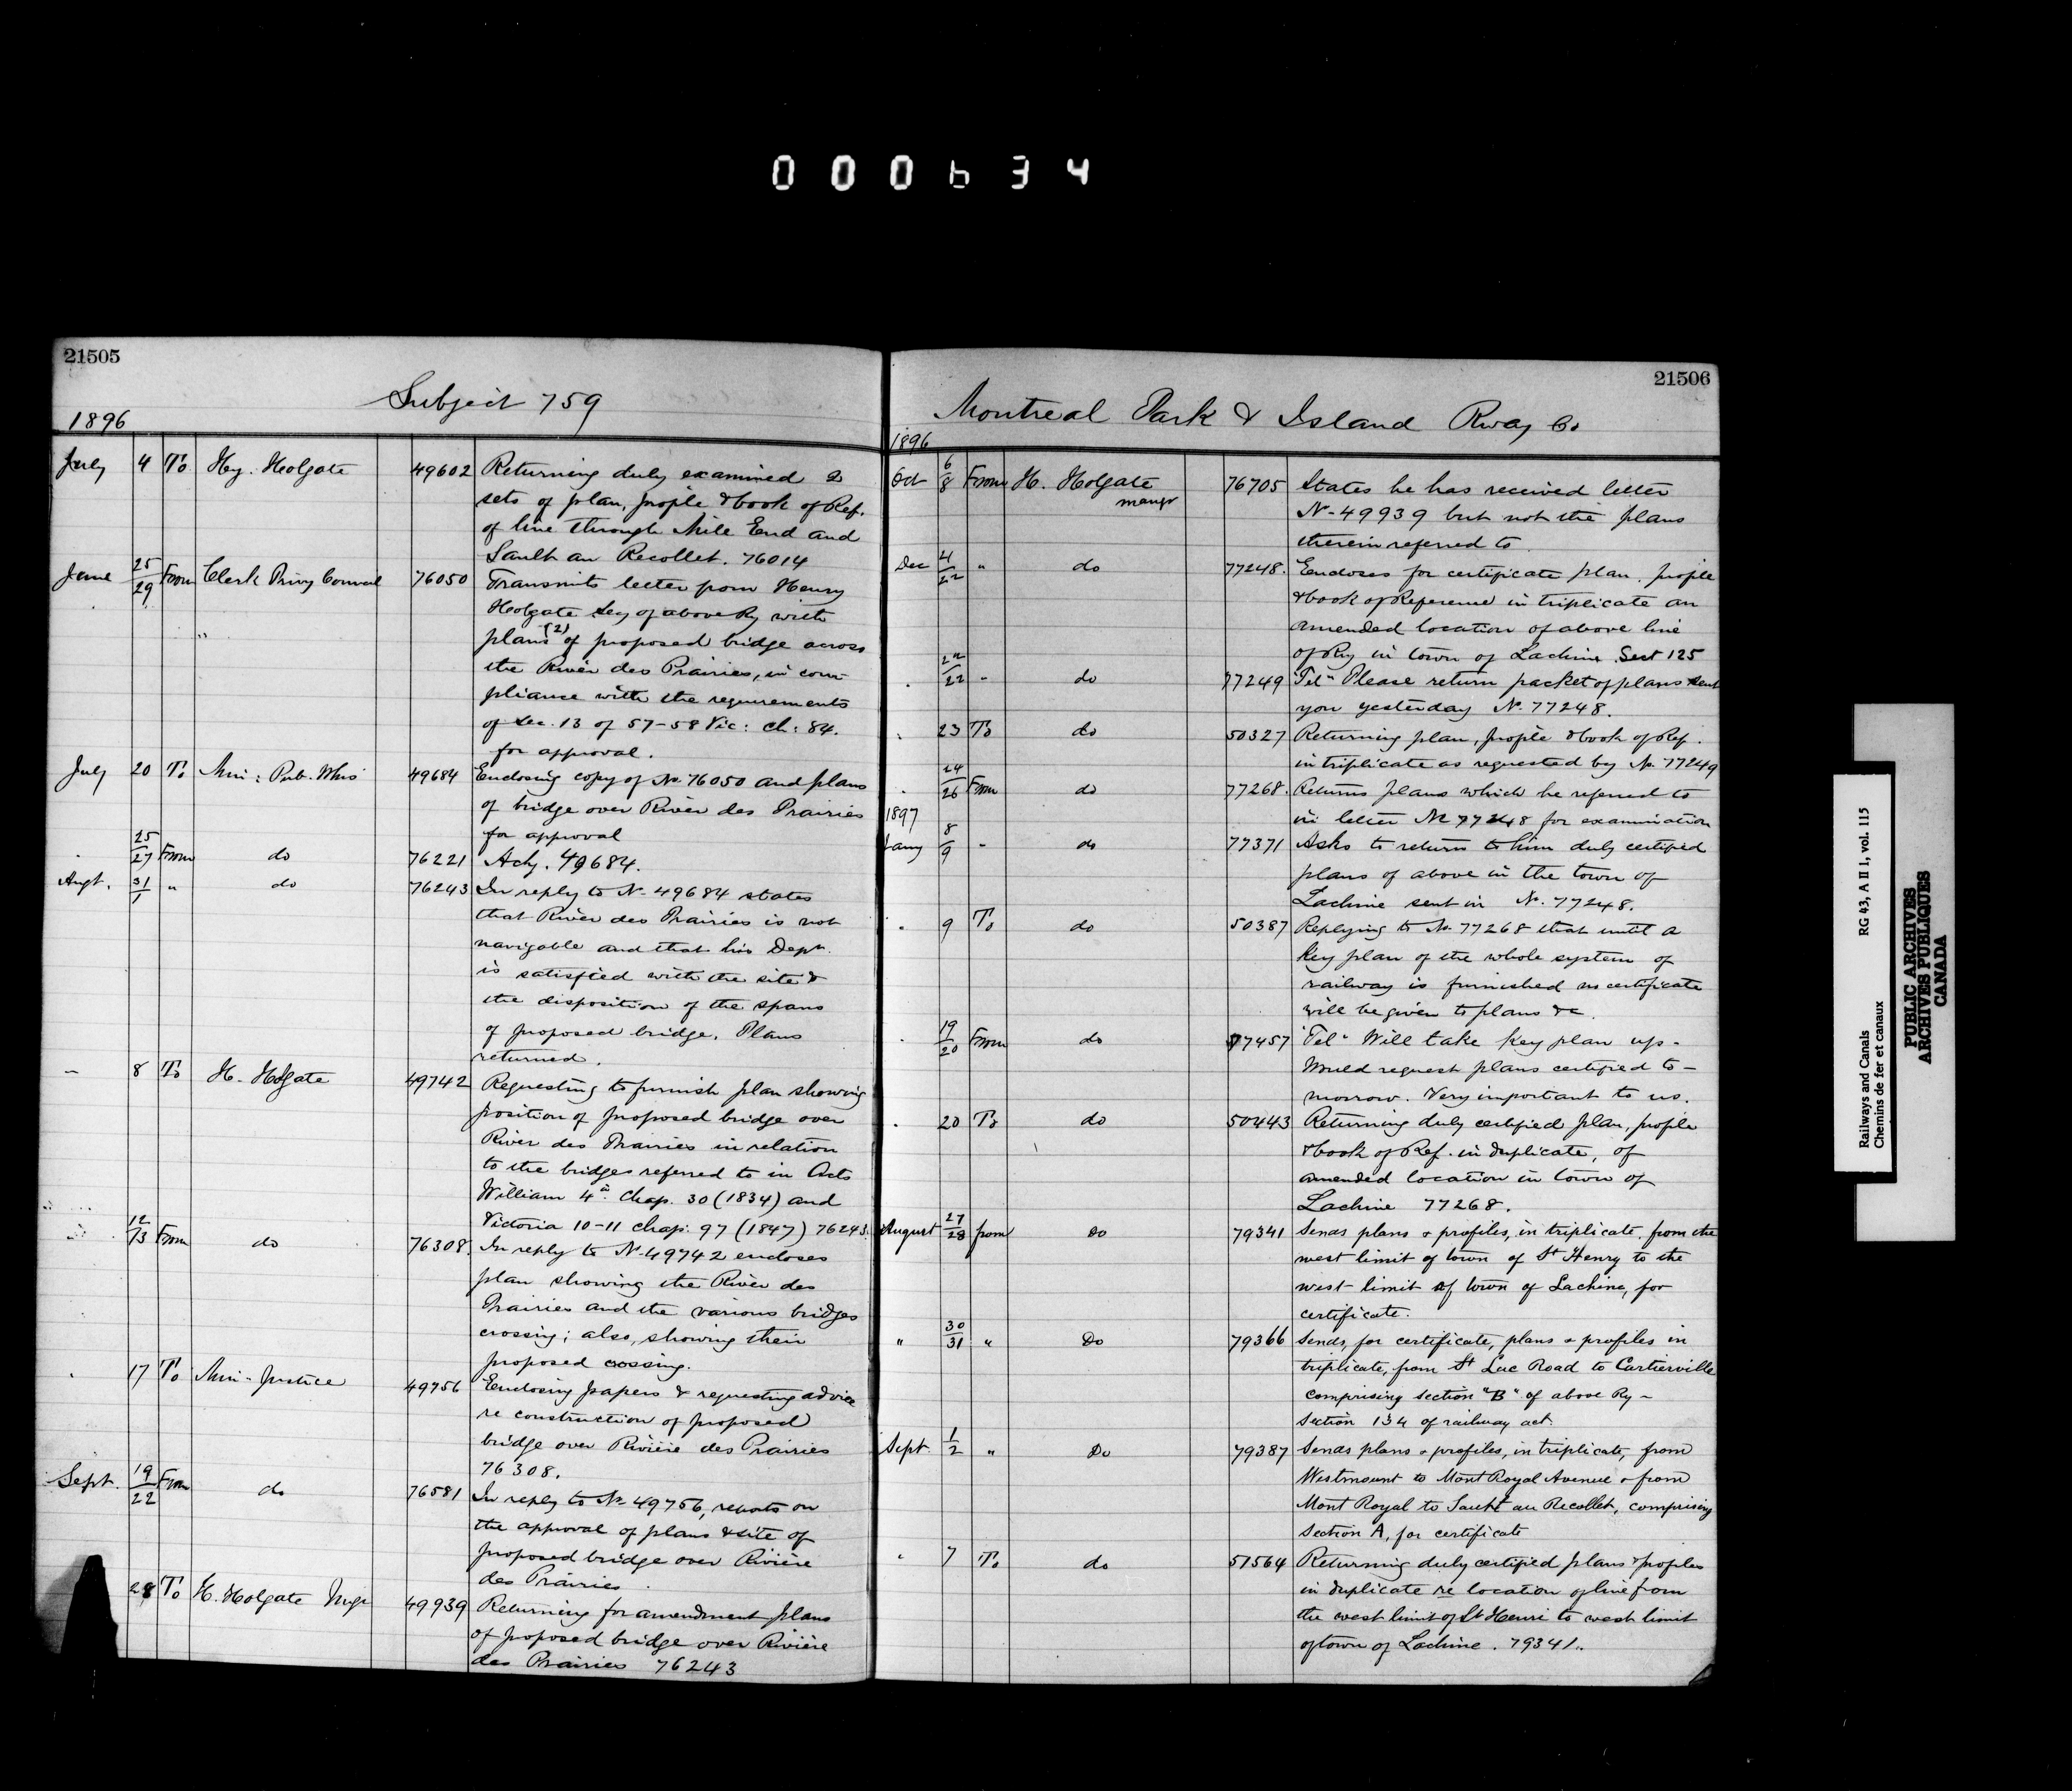 000634
21505
Subject 759
1896
July 4 To Hy. Holgate 49602 Returning duly examined 2
sets of plan, profile & book of Ref.
of line through Mile End and
Sault au Recollet. 76014
June 25/29 From Clerk Privy Council 76050 Transmits letter from Henry
Holgate Secy of above Ry with
plans (2) of proposed bridge across
the River des Prairies, in com-
pliance with the requirements
of Sec. 13 of 57-58 Vic: ch: 84.
for approval.
July 20 To Min: Pub. Wks 49684 Enclosing copy of No. 76050 and plans
of bridge over River des Prairies
for approval
" 25/27 From do 76221 Ackg. 49684.
Augt. 31/1 " do 76243 In reply to No 49684 states
that River des Prairies is not
navigable and that his Dept.
is satisfied with the site &
the disposition of the spans
of proposed bridge. Plans
returned.
" 8 To H. Holgate 49742 Requesting to furnish plan showing
position of proposed bridge over
River des Prairies in relation
to the bridges referred to in Acts
William 4th Chap. 30 (1834) and
Victoria 10-11 Chap: 97 (1847) 76243.
12/13 From do 76308. In reply to No 49742 encloses
plan showing the River des
Prairies and the various bridges
crossing; also, showing their
proposed crossing.
" 17 To Min-Justice 49756 Enclosing papers & requesting advice
re construction of proposed
bridge over Rivière des Prairies
76308.
Sept. 19/22 From do 76581 In reply to No 49756, reports on
the approval of plans & site of
proposed bridge over Rivière
des Prairies.
28 To H. Holgate Mgr 49939 Returning for amendment plans
of proposed bridge over Rivière
des Prairies 76243
21506
Montreal Park & Island Rway Co
1896
Oct 6/8 From H. Holgate mangr 76705 States he has received letter
No 49939 but not the plans
therein referred to.
Dec 4/22 " do 77248. Encloses for certificate plan, profile
& book of Reference in triplicate an
amended location of above line
of Ry in town of Lachine Sect 125
" 22/22 " do 77249 Telm Please return packet of plans sent
you yesterday No. 77248.
" 23 To do 50327 Returning plan, profile & book of Ref.
in triplicate as requested by No. 77249
" 24/26 From do 77268. Returns plans which he referred to
in letter No 77248 for examination
1897
Jany 8/9 " do 77371 Asks to return to him duly certified
plans of above in the town of
Lachine sent in No. 77248.
" 9 To do 50387 Replying to No. 77268 that until a
Key plan of the whole system of
railway is furnished no certificate
will be given to plans &c.
" 19/20 From do 77457 "Tel" Will take key plan up-
Would request plans certified to-
morrow. Very important to us.
" 20 To do 50443 Returning duly certified plan, profile
& book of Ref. in duplicate, of
amended location in town of
Lachine 77268.
August 27/28 from Do 79341 Sends plans & profiles, in triplicate, from the
west limit of town of St Henry to the
west limit of town of Lachine, for
certificate.
" 30/31 " Do 79366 Sends, for certificate, plans & profiles in
triplicate, from St Luc Road to Cartierville
comprising section "B" of above Ry-
Section 134 of railway act.
Sept. 1/2 " Do 79387 Sends plans & profiles, in triplicate, from
Westmount to Mont Royal Avenue & from
Mont Royal to Sault au Recollet, comprising
Section A, for certificate
" 7 To do 51564 Returning duly certified plans & profiles
in duplicate re location of line from
the west limit of St Henri to west limit
of town of Lachine. 79341.
Railways and Canals RG 43, A II 1, vol. 115
Chemins de fer et canaux
PUBLIC ARCHIVES
ARCHIVES PUBLIQUES
CANADA